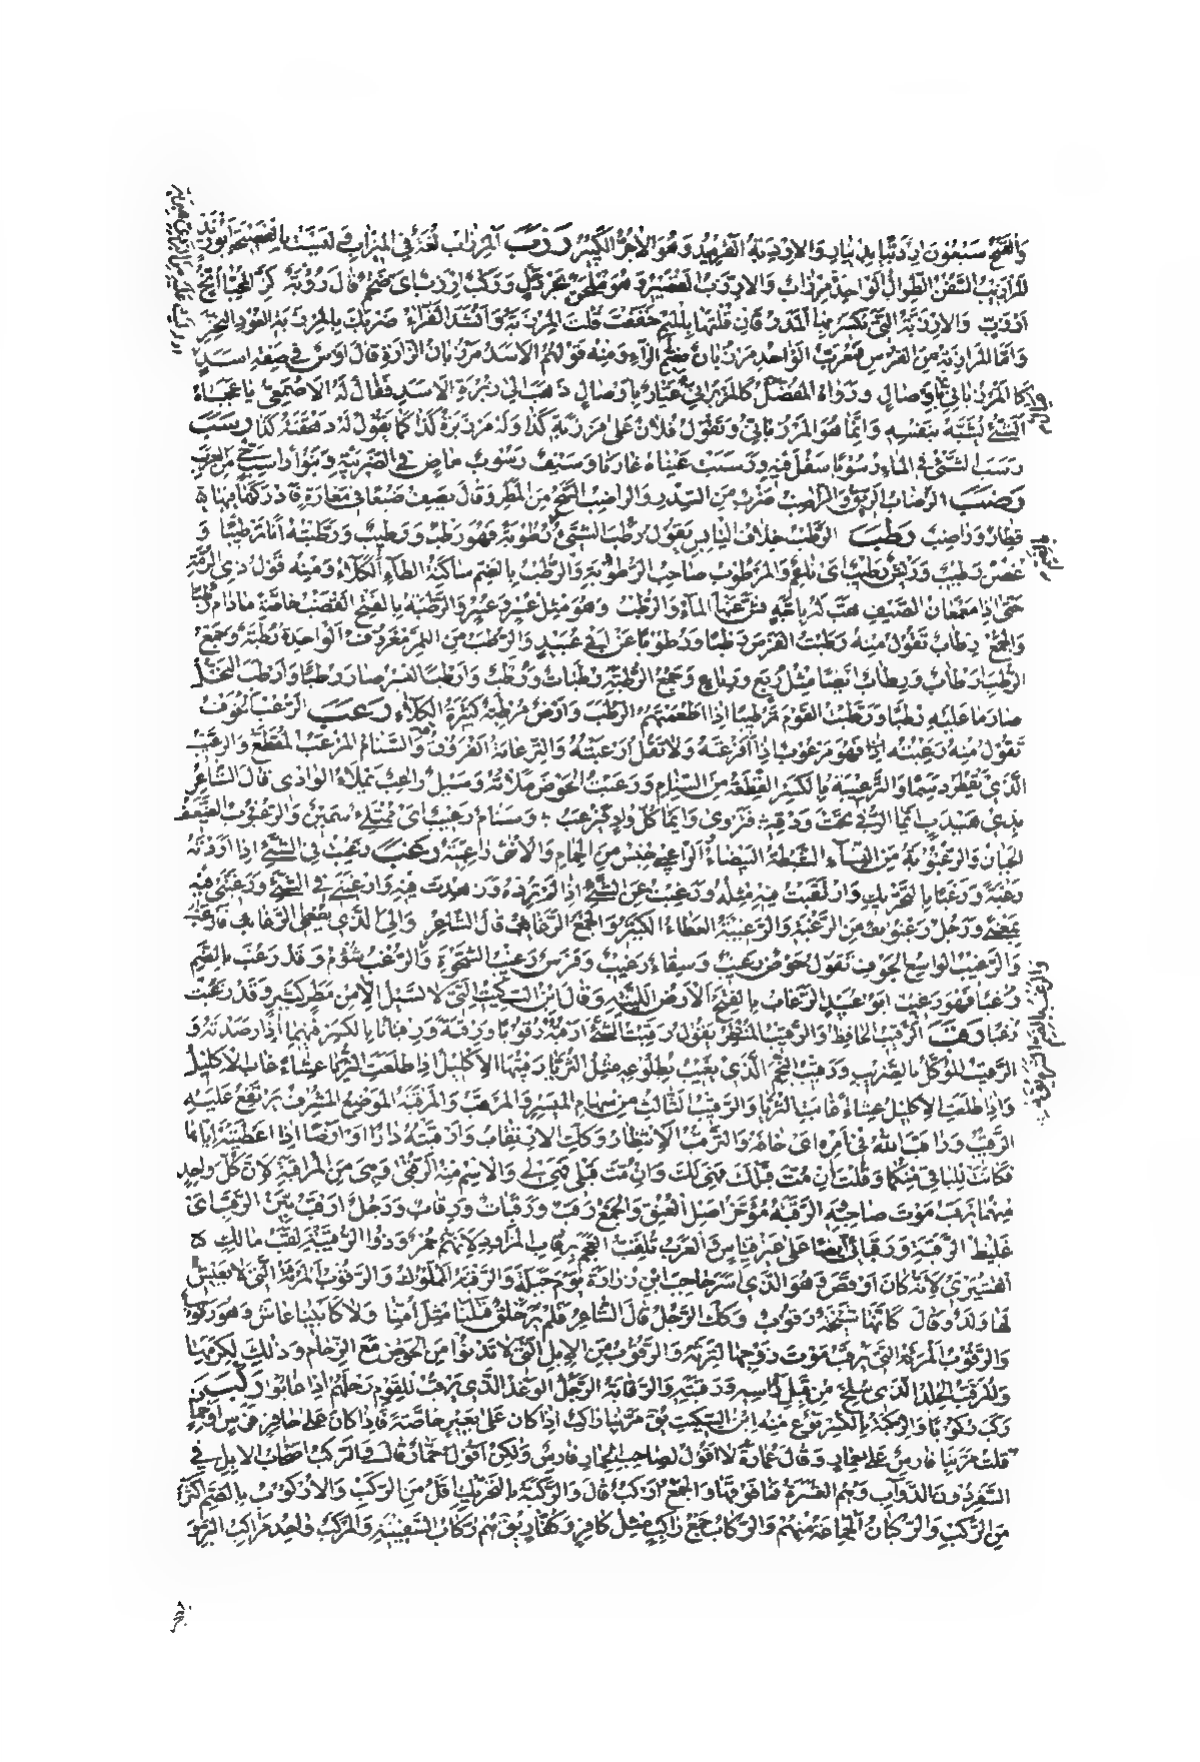 والقمح سبعون اردبا بدينار والاردبة القرميد وهو الآجر الكبير رزب المرزاب لغة في الميزاب وليست بالفصيحة ابو زيد
المرازيب السفن الطوال الواحدة مرزاب والارزب القصير وهو ملحق بجردحل وركب ارزب اى ضخم قال رؤبة كز المحيا انح
ارزب والارزبة التى يكسر بها المدر فان قلتها بالميم خففت قلت المرزبة وانشد الفراء ضربك بالمرزبة العود النخر
واما المرازبة من الفرس فمعرب الواحد مرزبان بضم الزاء ومنه قولهم للاسد مرزبان الزارة قال اوس فى صفة اسد
كالمرزبانى عيار باوصال ورواه المفضل كالمزبرانى عيار باوصال ذهب الى زبرة الاسد فقال له الاصمعى يا عجباه
الشئ يشبه بنفسه وانما هو المرزبانى وتقول فلان على مرزبة كذا وله مرزبة كذا كما تقول له دهقنة كذا رسب
رسب الشئ فى الماء رسوبا سفل فيه ورسبت عيناه غارتا وسيف رسوب ماض فى الضريبة وبنو راسب حى من العرب
رضب الرضاب الريق والراضب ضرب من السدر والراضب السح من المطر وقال يصف ضبعا فى مغارة
قطار وراضب رطب الرطب خلاف اليابس تقول رطب الشئ رطوبة فهو رطب ورطيب ورطبته انا ترطيبا و
غصن رطيب وريش رطيب اى ناعم والمرطوب صاحب الرطوبة والرطب بالضم ساكنة الطاء الكلاء ومنه قول ذى الرمة
حتى اذا معمعان الصيف هب له باجة نش عنها الماء والرطب وهو مثل عسر وعسر والرطبة بالفتح القضب خاصة مادام رطبا
والجمع رطاب تقول منه رطبت الفرس رطبا ورطوبا عن ابى عبيد والرطب من التمر معروف الواحدة رطبة وجمع
الرطب ارطاب ورطاب ايضا مثل ربع ورباع وجمع الرطبة رطبات ورطب وارطب البسر صار رطبا وارطب النخل
صار ما عليه رطبا ورطبت القوم ترطيبا اذا اطعمتهم الرطب وارض مرطبة كثيرة الكلاء رعب الرعب الخوف
تقول منه رعبته فهو مرعوب اذا افزعته ولا تقل ارعبته والترعابة الفروقة والسنام المرعب المقطع والرعيب
الذى يقطر دسما والترعيبة بالكسر القطعة من السنام ورعبت الحوض ملأته وسيل راعب يملاء الوادى قال الشاعر
بذى هيدب ايما الربى تحت ودقه فتروى وايما كل واد فيرعب وسنام رعيب اى ممتلئ سمين والرعبوب الضعيف
الجبان والرعبوبة من النساء الشطبة البيضاء الراعبى جنس من الحمام والانثى راعبية رغب رغبت فى الشئ اذا اردته
رغبة ورغبا بالتحريك وارتغبت فيه مثله ورغبت عن الشئ اذا لم ترده وزهدت فيه وارغبنى فى الشئ ورغبنى فيه
بمعنى ورجل رغبوت من الرغبة والرغيبة العطاء الكثير والجمع الرغائب قال الشاعر والى الذى يعطى الرغائب فارغب
والرغيب الواسع الجوف تقول حوض رغيب وسقاء رغيب وفرس رغيب الشحوة والرغب شؤم وقد رغب بالضم
رغبا فهو رغيب ابو عبيد الرغاب بالفتح الارض اللينة وقال ابن السكيت التى لا تسيل الا من مطر كثير وقد رغبت
رغبا رقب الرقيب الحافظ والرقيب المنتظر تقول رقبت الشئ ارقبه رقوبا ورقبة ورقبانا بالكسر فيهما اذا رصدته و
الرقيب الموكل بالضريب ورقيب النجم الذى يغيب بطلوعه مثل الثريا رقيبها الاكليل اذا طلعت الثريا عشاء غاب الاكليل
واذا طلع الاكليل عشاء غابت الثريا والرقيب الثالث من سهام الميسر والمرقب والمرقبة الموضع المشرف يرتفع عليه
الرقيب وراقب الله فى امره اى خافه والترقب الانتظار وكذلك الارتقاب وارقبته دارا او ارضا اذا اعطيته اياها
فكانت للباقى منكما وقلت ان مت قبلك فهى لك وان مت قبلى فهى لى والاسم منه الرقبى وهى من المراقبة لان كل واحد
منهما يرقب موت صاحبه الرقبة مؤخر اصل العنق والجمع رقب ورقبات ورقاب ورجل ارقب بين الرقب اى
غليظ الرقبة ورقبانى ايضا على غير قياس والعرب تلقب العجم برقاب المزاود لانهم حمر وذو الرقيبة لقب مالك
القشيرى لانه كان اوقص وهو الذى اسر حاجب ابن زرارة يوم جبلة والرقبة المملوك والرقوب المرءة التى لا يعيش
لها ولد وقال كانها شيخة رقوب وكذلك الرجل قال الشاعر فلم ير خلق قبلنا مثل امنا ولا كابينا عاش وهو رقوب
والرقوب المرءة التى ترقب موت زوجها لترثه والرقوب من الابل التى لا تدنو من الحوض مع الزحام وذلك لكرمها
والمرقب الجلد الذى سلخ من قبل راسه ورقبته والرقابة الرجل الوغد الذى يرقب للقوم رحلهم اذا غابوا ركب
ركب ركوبا والركبة بالكسر نوع منه ابن السكيت يقول مر بنا راكب اذا كان على بعير خاصة فاذا كان على حافر فرس او حمار
قلت مر بنا فارس على حمار وقال عمارة لا اقول لصاحب الحمار فارس ولكن اقول حمار قال والركب اصحاب الابل فى
السفر دون الدواب وهم العشرة فما فوقها والجمع اركب قال والركبة بالتحريك اقل من الركب والاركوب بالضم اكثر
من الركب والركبان الجماعة منهم والركاب جمع راكب مثل كافر وكفار يقال هم ركاب السفينة والمركب واحد مراكب البر و